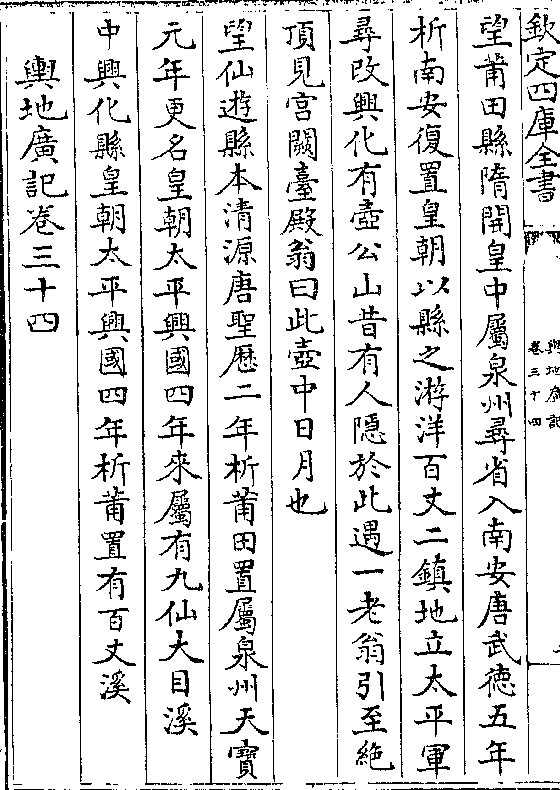 欽定四庫全書
輿地廣記
卷三十四
望莆田縣隋開皇中屬泉州尋省入南安唐武徳五年
析南安復置皇朝以縣之游洋百丈二鎮地立太平軍
尋改興化有壺公山昔有人隠於此遇一老翁引至絶
頂見宫闕臺殿翁曰此壺中日月也
望仙遊縣本清源唐聖歴二年析莆田置屬泉州天寶
元年更名皇朝太平興國四年來屬有九仙大目溪
中興化縣皇朝太平興國四年析莆置有百丈溪
輿地廣記卷三十四